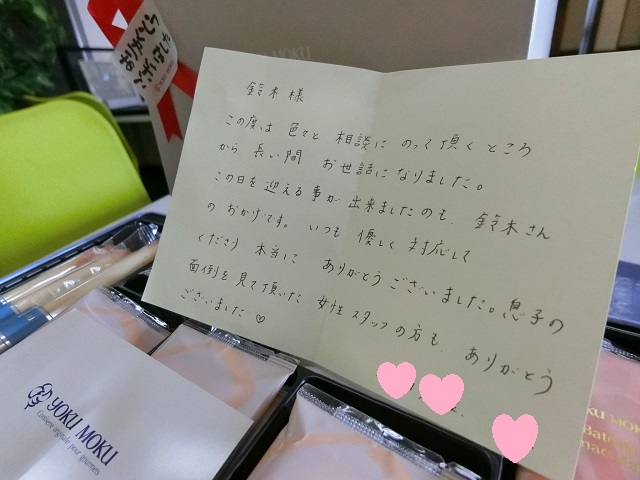 お世話に
なりました
YOKU MOKU
鈴木様
この度は 色々と 相談に のって頂くところ
から 長い間 お世話になりました。
この日を迎える事が 出来ましたのも、鈴木さん
のおかげです。いつも 優しく 対応して
くださり 本当に ありがとうございました。息子の
面倒を見て頂いた 女性スタッフの方も、ありがとう
ございました♡
YOKU MOKU
YOKU MOKU